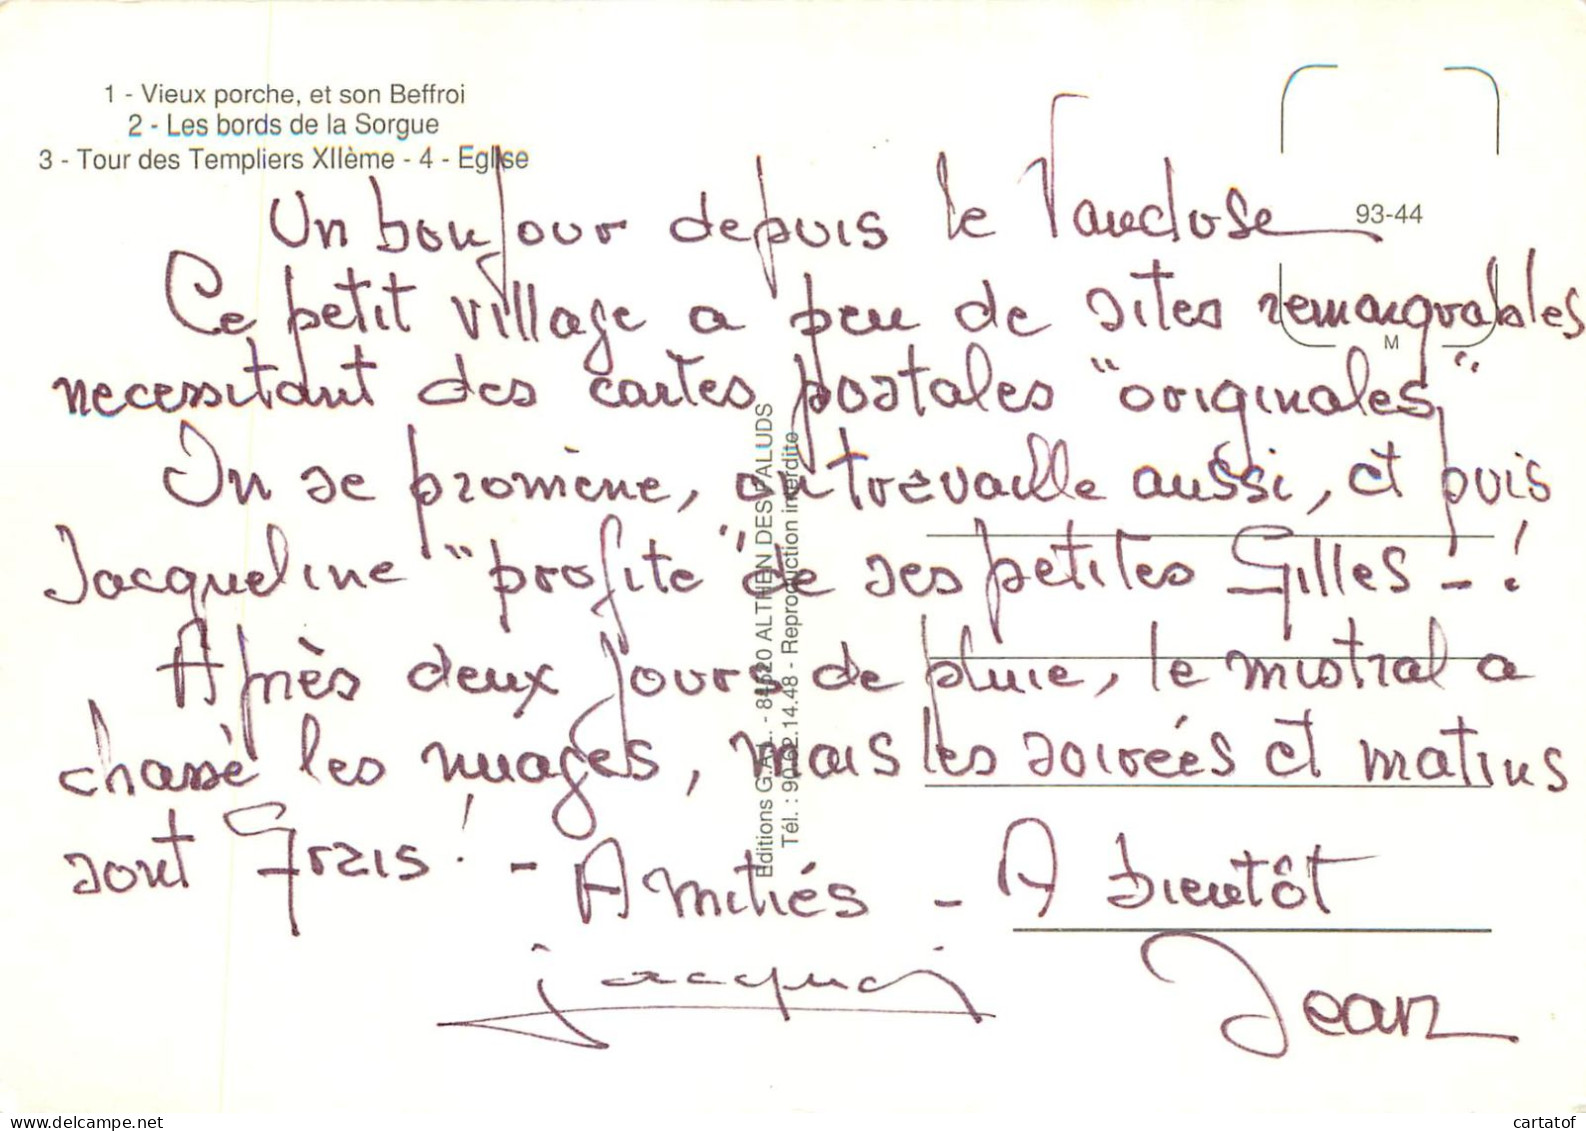 1 - Vieux porche, et son Beffroi
2 - Les bords de la Sorgue
3 - Tour des Templiers XIIème - 4 - Eglise
93-44
M
Un bonjour depuis le Vaucluse
Ce petit village a peu de sites remarquables
necessitant des cartes postales "originales"
On se promène, on travaille aussi, et puis
Jacqueline "profite" de ses petites Gilles - !
Après deux jours de pluie, le mistral a
chassé les nuages, mais les soirées et matins
sont frais ! - Amitiés - A bientôt
Jean
Editions G.A.L. - 84520 ALTHEN DES PALUDS
Tél. : 90.62.14.48 - Reproduction interdite
www.delcampe.net
cartatof